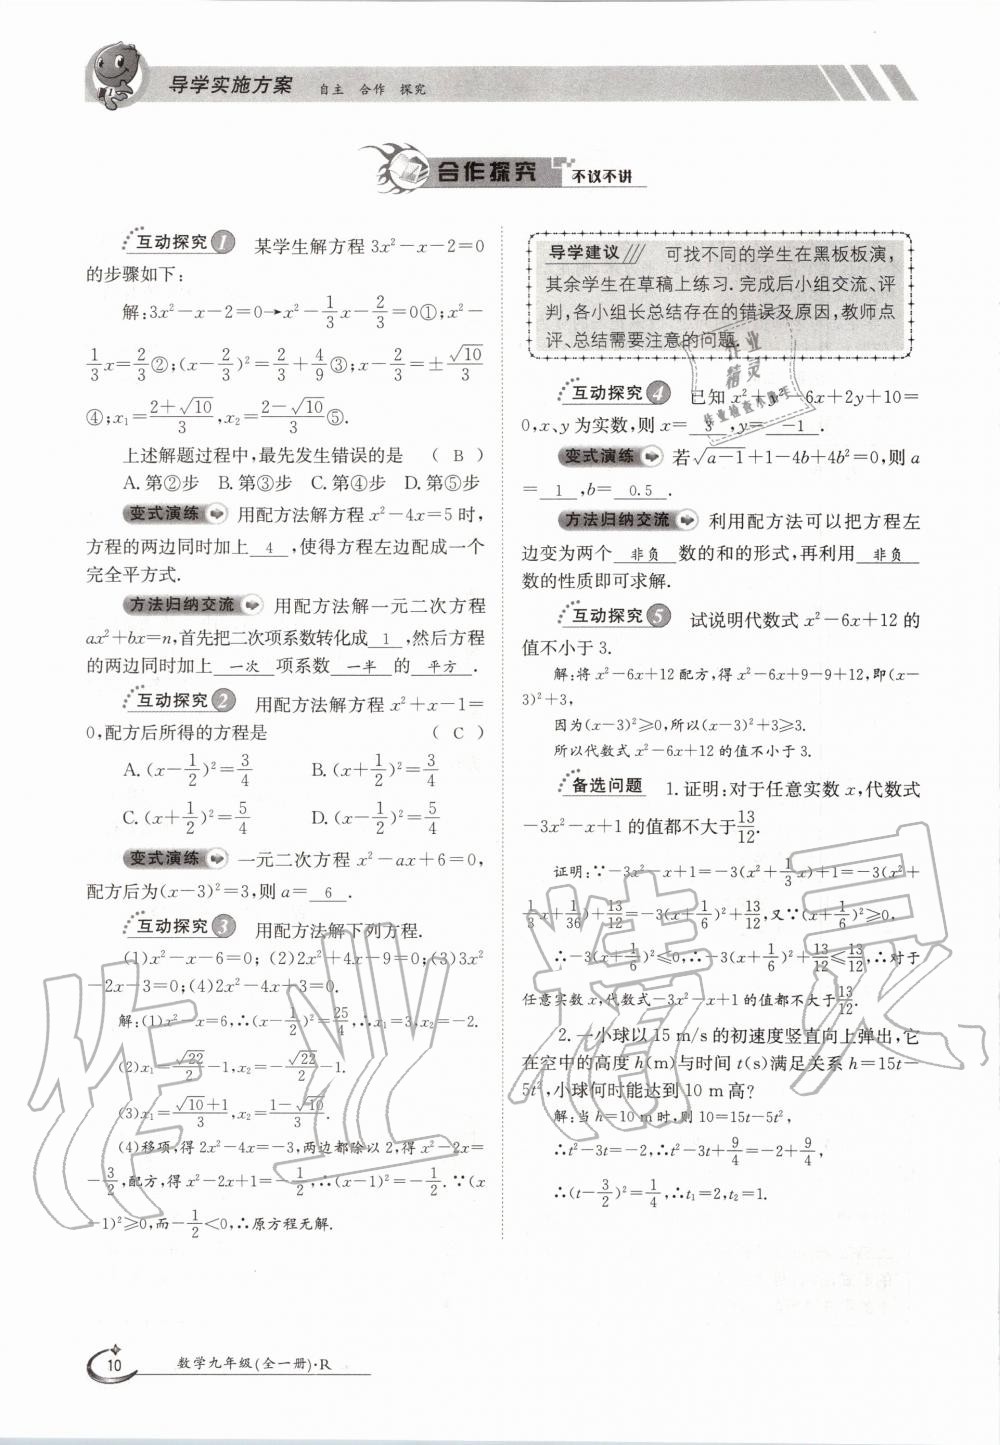 导学实施方案 自主 合作 探究
合作探究 不议不讲
互动探究1 某学生解方程 3x²－x－2＝0
的步骤如下:
解:3x²－x－2＝0→x²－1/3x－2/3＝0①;x²－
1/3x＝2/3②;(x－2/3)²＝2/3＋4/9③;x－2/3＝±√10/3
④;x₁＝(2＋√10)/3,x₂＝(2－√10)/3⑤.
上述解题过程中,最先发生错误的是 ( B )
A.第②步 B.第③步 C.第④步 D.第⑤步
变式演练 用配方法解方程 x²－4x＝5 时,
方程的两边同时加上 4 ,使得方程左边配成一个
完全平方式.
方法归纳交流 用配方法解一元二次方程
ax²＋bx＝n,首先把二次项系数转化成 1 ,然后方程
的两边同时加上 一次 项系数 一半 的 平方 .
互动探究2 用配方法解方程 x²＋x－1＝
0,配方后所得的方程是 ( C )
A.(x－1/2)²＝3/4 B.(x＋1/2)²＝3/4
C.(x＋1/2)²＝5/4 D.(x－1/2)²＝5/4
变式演练 一元二次方程 x²－ax＋6＝0,
配方后为(x－3)²＝3,则 a＝ 6 .
互动探究3 用配方法解下列方程.
(1)x²－x－6＝0;(2)2x²＋4x－9＝0;(3)3x²
－2x－3＝0;(4)2x²－4x＋3＝0.
解:(1)x²－x＝6,∴(x－1/2)²＝25/4,∴x₁＝3,x₂＝－2.
(2)x₁＝√22/2－1,x₂＝－√22/2－1.
(3)x₁＝(√10＋1)/3,x₂＝(1－√10)/3.
(4)移项,得 2x²－4x＝－3,两边都除以 2,得 x²－2x＝
－3/2,配方,得 x²－2x＋1＝－1/2,∴(x－1)²＝－1/2.∵(x
－1)²≥0,而－1/2＜0,∴原方程无解.
导学建议 可找不同的学生在黑板板演,
其余学生在草稿上练习.完成后小组交流、评
判,各小组长总结存在的错误及原因,教师点
评、总结需要注意的问题.
互动探究4 已知 x²＋y²－6x＋2y＋10＝
0,x、y 为实数,则 x＝ 3 ,y＝ －1 .
变式演练 若√(a－1)＋1－4b＋4b²＝0,则 a
＝ 1 ,b＝ 0.5 .
方法归纳交流 利用配方法可以把方程左
边变为两个 非负 数的和的形式,再利用 非负
数的性质即可求解.
互动探究5 试说明代数式 x²－6x＋12 的
值不小于 3.
解:将 x²－6x＋12 配方,得 x²－6x＋9－9＋12,即(x－
3)²＋3,
因为(x－3)²≥0,所以(x－3)²＋3≥3.
所以代数式 x²－6x＋12 的值不小于 3.
备选问题 1.证明:对于任意实数 x,代数式
－3x²－x＋1 的值都不大于13/12.
证明:∵－3x²－x＋1＝－3(x²＋1/3x)＋1＝－3(x²＋
1/3x＋1/36)＋13/12＝－3(x＋1/6)²＋13/12,又∵(x＋1/6)²≥0,
∴－3(x＋1/6)²≤0,∴－3(x＋1/6)²＋13/12≤13/12,∴对于
任意实数 x,代数式－3x²－x＋1 的值都不大于13/12.
2.一小球以 15 m/s 的初速度竖直向上弹出,它
在空中的高度 h(m)与时间 t(s)满足关系 h＝15t－
5t²,小球何时能达到 10 m 高?
解:当 h＝10 m 时,则 10＝15t－5t²,
∴t²－3t＝－2,∴t²－3t＋9/4＝－2＋9/4,
∴(t－3/2)²＝1/4,∴t₁＝2,t₂＝1.
作业
精灵
作业检查小助手
作业精灵
10 数学九年级(全一册)·R